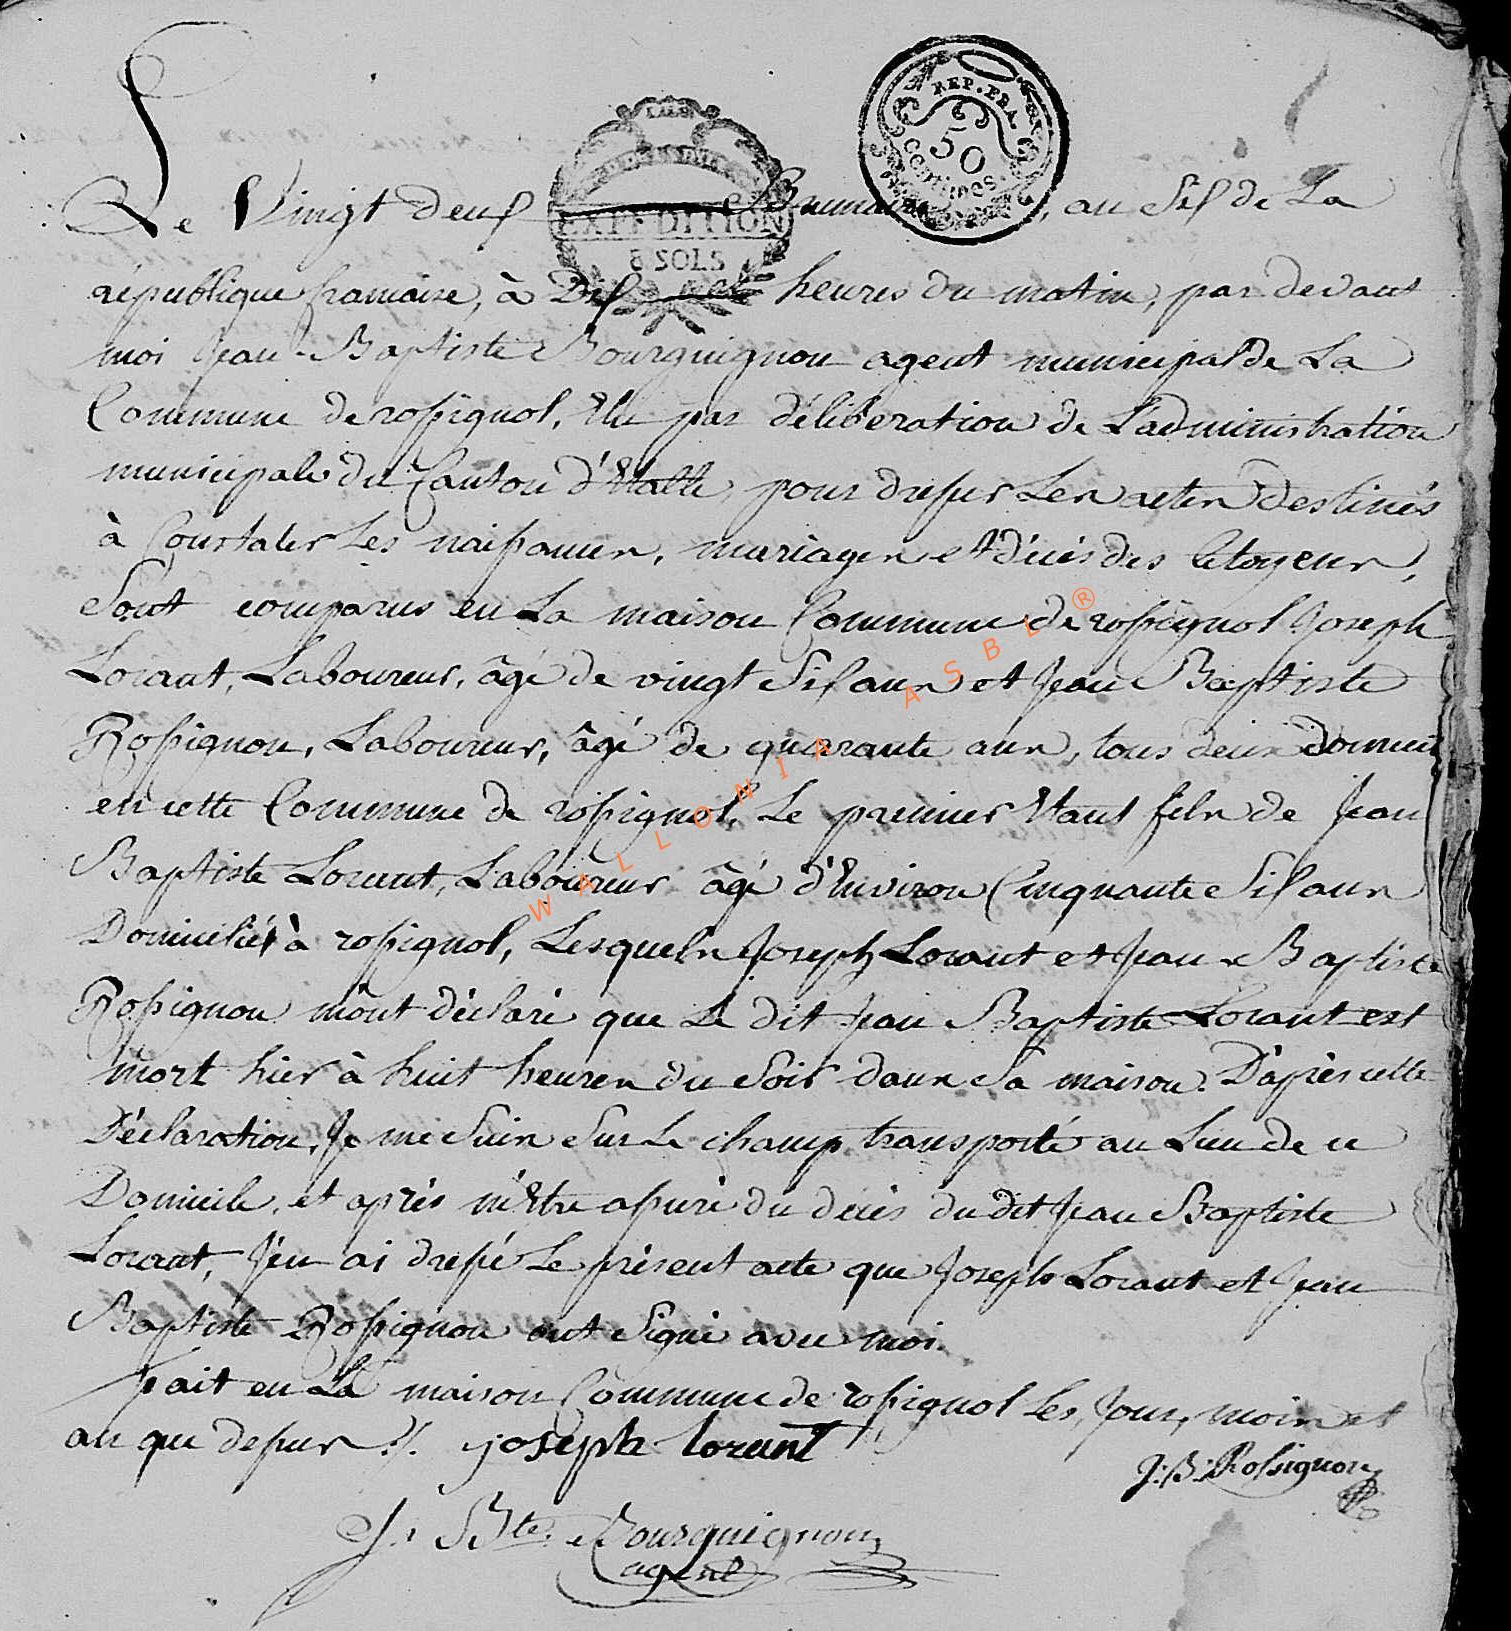 REP. FRA.
50
centimes
EXPEDITION
8 SOLS
Le Vingt deux Brumaire, an Six de La
république francaise, à Dix heures du matin, par devant
moi Jean-Baptiste Bourguignon agent municipal de La
Commune de rossignol, Elu par délibération de L'administration
municipale du Canton d'Etalle, pour dresser Les actes destinés
à Constater Les naissances, mariages et décès des Citoyens,
Sont comparus en La maison Commune de rossignol Joseph
Lorant, Laboureur, âgé de vingt Six ans et Jean Baptiste
Rossignon, Laboureur, âgé de quarante ans, tous deux
en cette Commune de rossignol, Le premier Etant fils de Jean
Baptiste Lorant, Laboureur âgé d'Environ Cinquante Six ans
Domicilié à rossignol, Lesquels Joseph Lorant et Jean Baptiste
Rossignon m'ont déclaré que Le dit Jean Baptiste Lorant est
mort hier à huit heures du Soir dans Sa maison. D'après cette
Déclaration, Je me Suis Sur Le champ transporté au Lieu de ce
Domicile, et après m'Etre assuré du décès du dit Jean Baptiste
Lorant, J'en ai dressé Le présent acte que Joseph Lorant et Jean
Baptiste Rossignon ont Signé avec moi.
fait en La maison Commune de rossignol Les Jour, mois et
an que dessus ./.
joseph lorant
J: B: Rossignon
J. Bte. Bourguignon
agent
WALLONIA ASBL ®